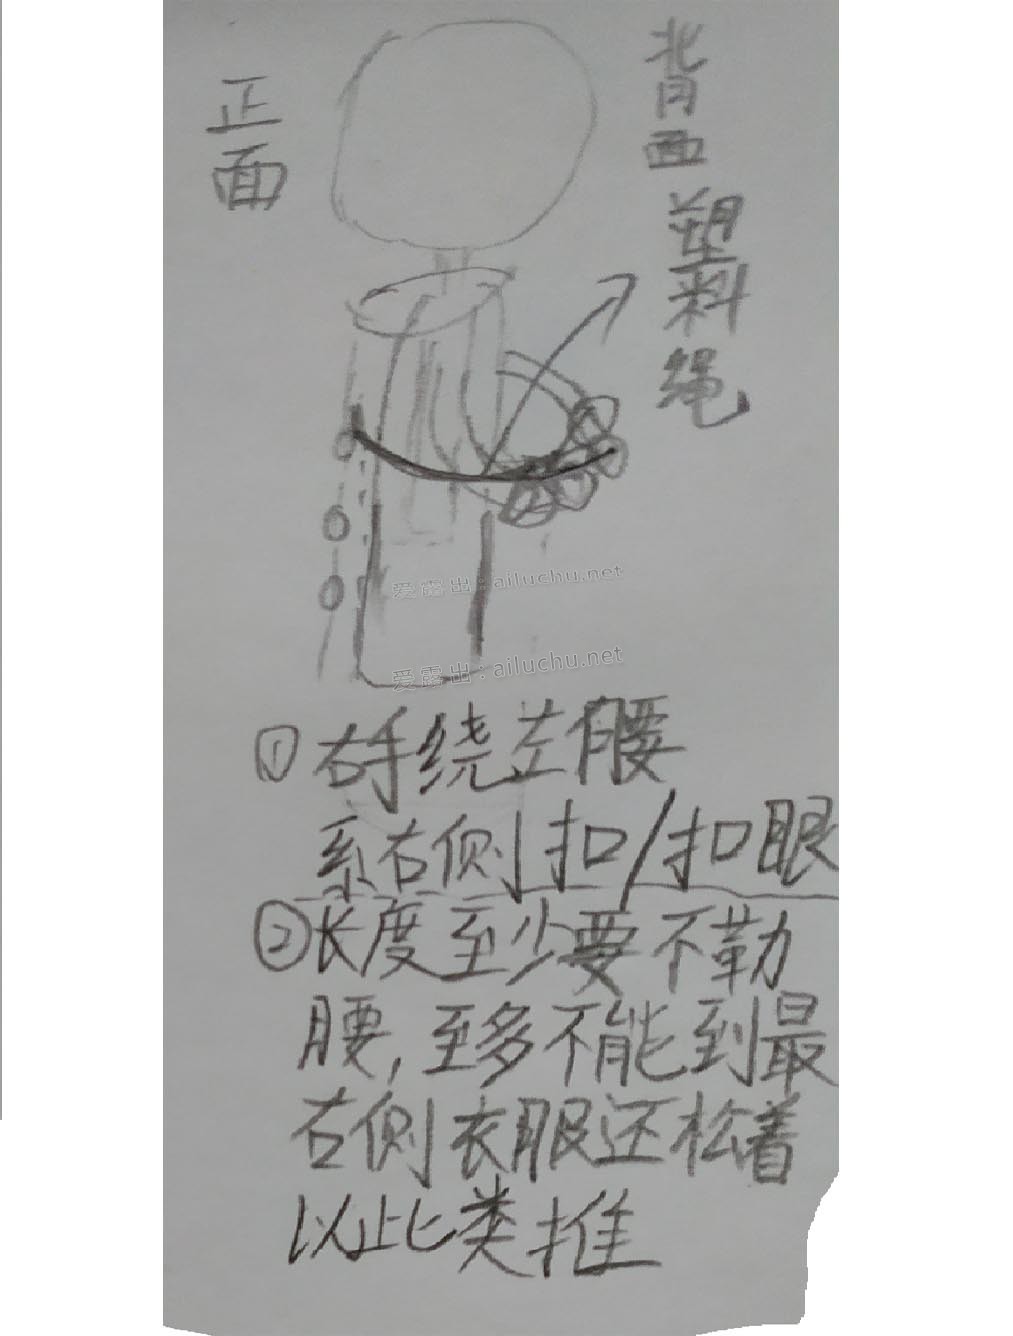 正面
背面
塑料绳
爱露出：ailuchu.net
爱露出：ailuchu.net
① 右手绕左侧腰
系右侧扣/扣眼
② 长度至少要不勒
腰，至多不能到最
右侧衣服还松着
以此类推